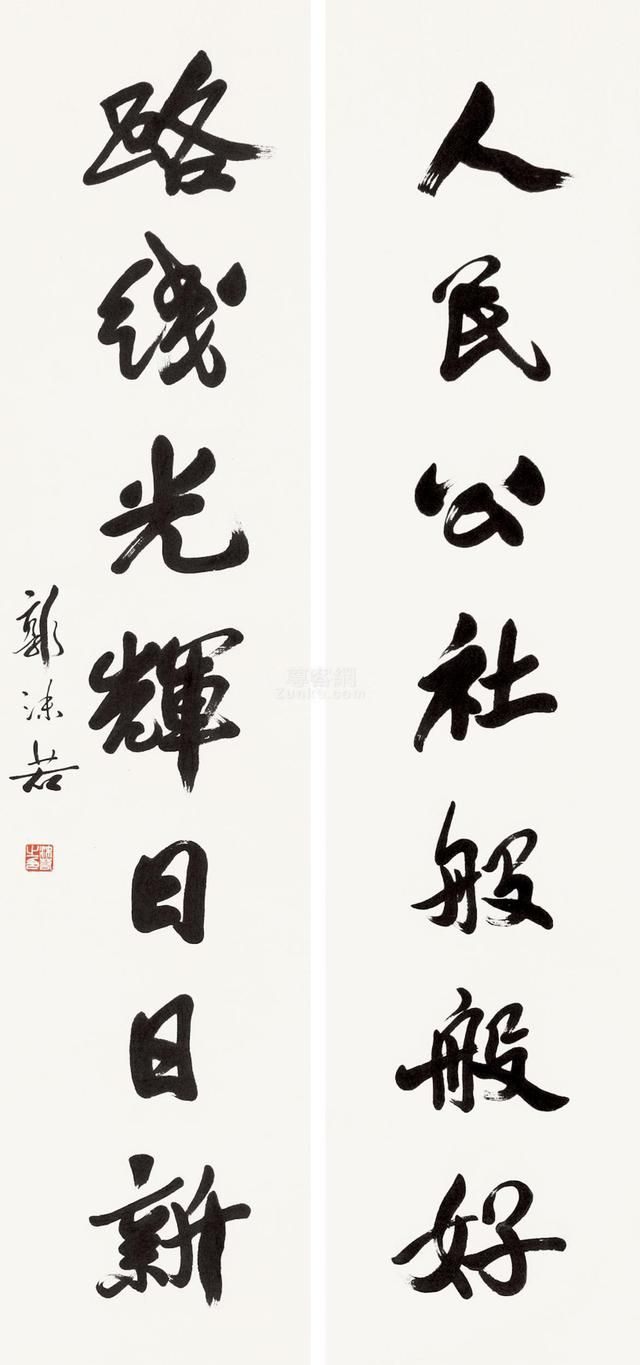 人民公社般般好
路线光輝日日新
郭沫若
尊客網
Zunke.com